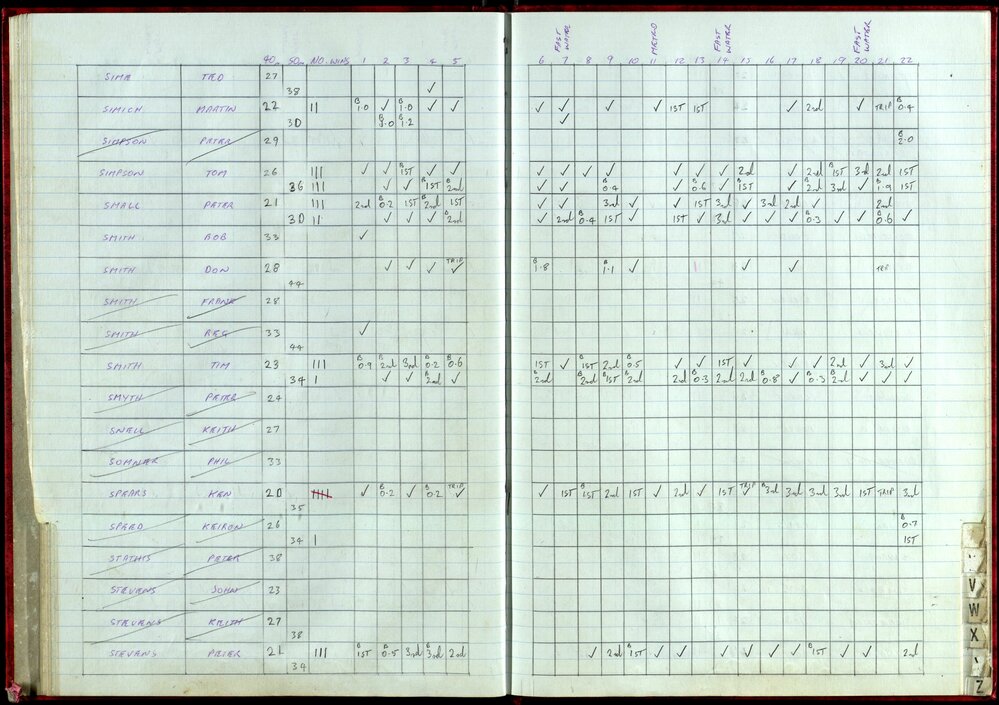 FAST WATER METRO FAST WATER FAST WATER
40m 50m NO. WINS 1 2 3 4 5 6 7 8 9 10 11 12 13 14 15 16 17 18 19 20 21 22
SIME TED 27
38 ✓
SIMICH MARTIN 22 II B 1.0 ✓ B 1.0 ✓ ✓ ✓ ✓ ✓ ✓ 1ST 1ST ✓ 2nd ✓ TRIP B 0.4
30 B 3.0 B 1.2 ✓
SIMPSON PETER 29 B 2.0
SIMPSON TOM 26 III ✓ ✓ B 1ST ✓ ✓ ✓ ✓ ✓ ✓ ✓ ✓ ✓ ✓ 2nd ✓ 2nd B 1ST 3rd 2nd 1ST
36 III ✓ ✓ B 1ST B 2nd ✓ ✓ B 0.4 ✓ B 0.6 ✓ B 1ST ✓ B 2nd 3rd ✓ B 1.9 1ST
SMALL PETER 21 III 2nd B 0.2 1ST B 2nd 1ST ✓ ✓ 3rd ✓ ✓ 1ST 3rd ✓ 3rd 2nd ✓ 2nd
30 II ✓ ✓ ✓ 2nd ✓ 2nd B 0.4 1ST ✓ 1ST ✓ 3rd ✓ ✓ ✓ B 0.3 ✓ ✓ B 0.6 ✓
SMITH BOB 33 ✓
SMITH DON 28 ✓ ✓ ✓ TRIP ✓ B 1.8 B 1.1 ✓ 1 ✓ ✓ TRIP
44
SMITH FRANK 28
SMITH REG 33 ✓
44
SMITH TIM 23 III B 0.9 B 2nd 3rd B 0.2 B 0.6 1ST ✓ B 1ST 2nd B 0.5 ✓ ✓ 1ST ✓ ✓ ✓ 2nd ✓ 3rd ✓
34 I ✓ ✓ B 2nd ✓ B 2nd B 2nd B 1ST B 2nd 2nd B 0.3 2nd 2nd B 0.8 ✓ B 0.3 B 2nd ✓ ✓ ✓
SMYTH PETER 24
SNELL KEITH 27
SOMNER PHIL 33
SPEARS KEN 20 IIII ✓ B 0.2 ✓ B 0.2 TRIP ✓ ✓ 1ST B 1ST 2nd 1ST ✓ 2nd ✓ 1ST TRIP ✓ B 3rd 3rd 3rd 3rd 1ST TRIP 3rd
35
SPEED KEIRON 26 B 0.7
34 I 1ST
STATHIS PETER 38
STEVENS JOHN 23
STEVENS KEITH 27
38
STEVENS PETER 21 III B 1ST B 0.5 3rd B 3rd 2nd ✓ 2nd B 1ST ✓ ✓ ✓ ✓ ✓ ✓ B 1ST ✓ ✓ 2nd
34
V
W
X
Z